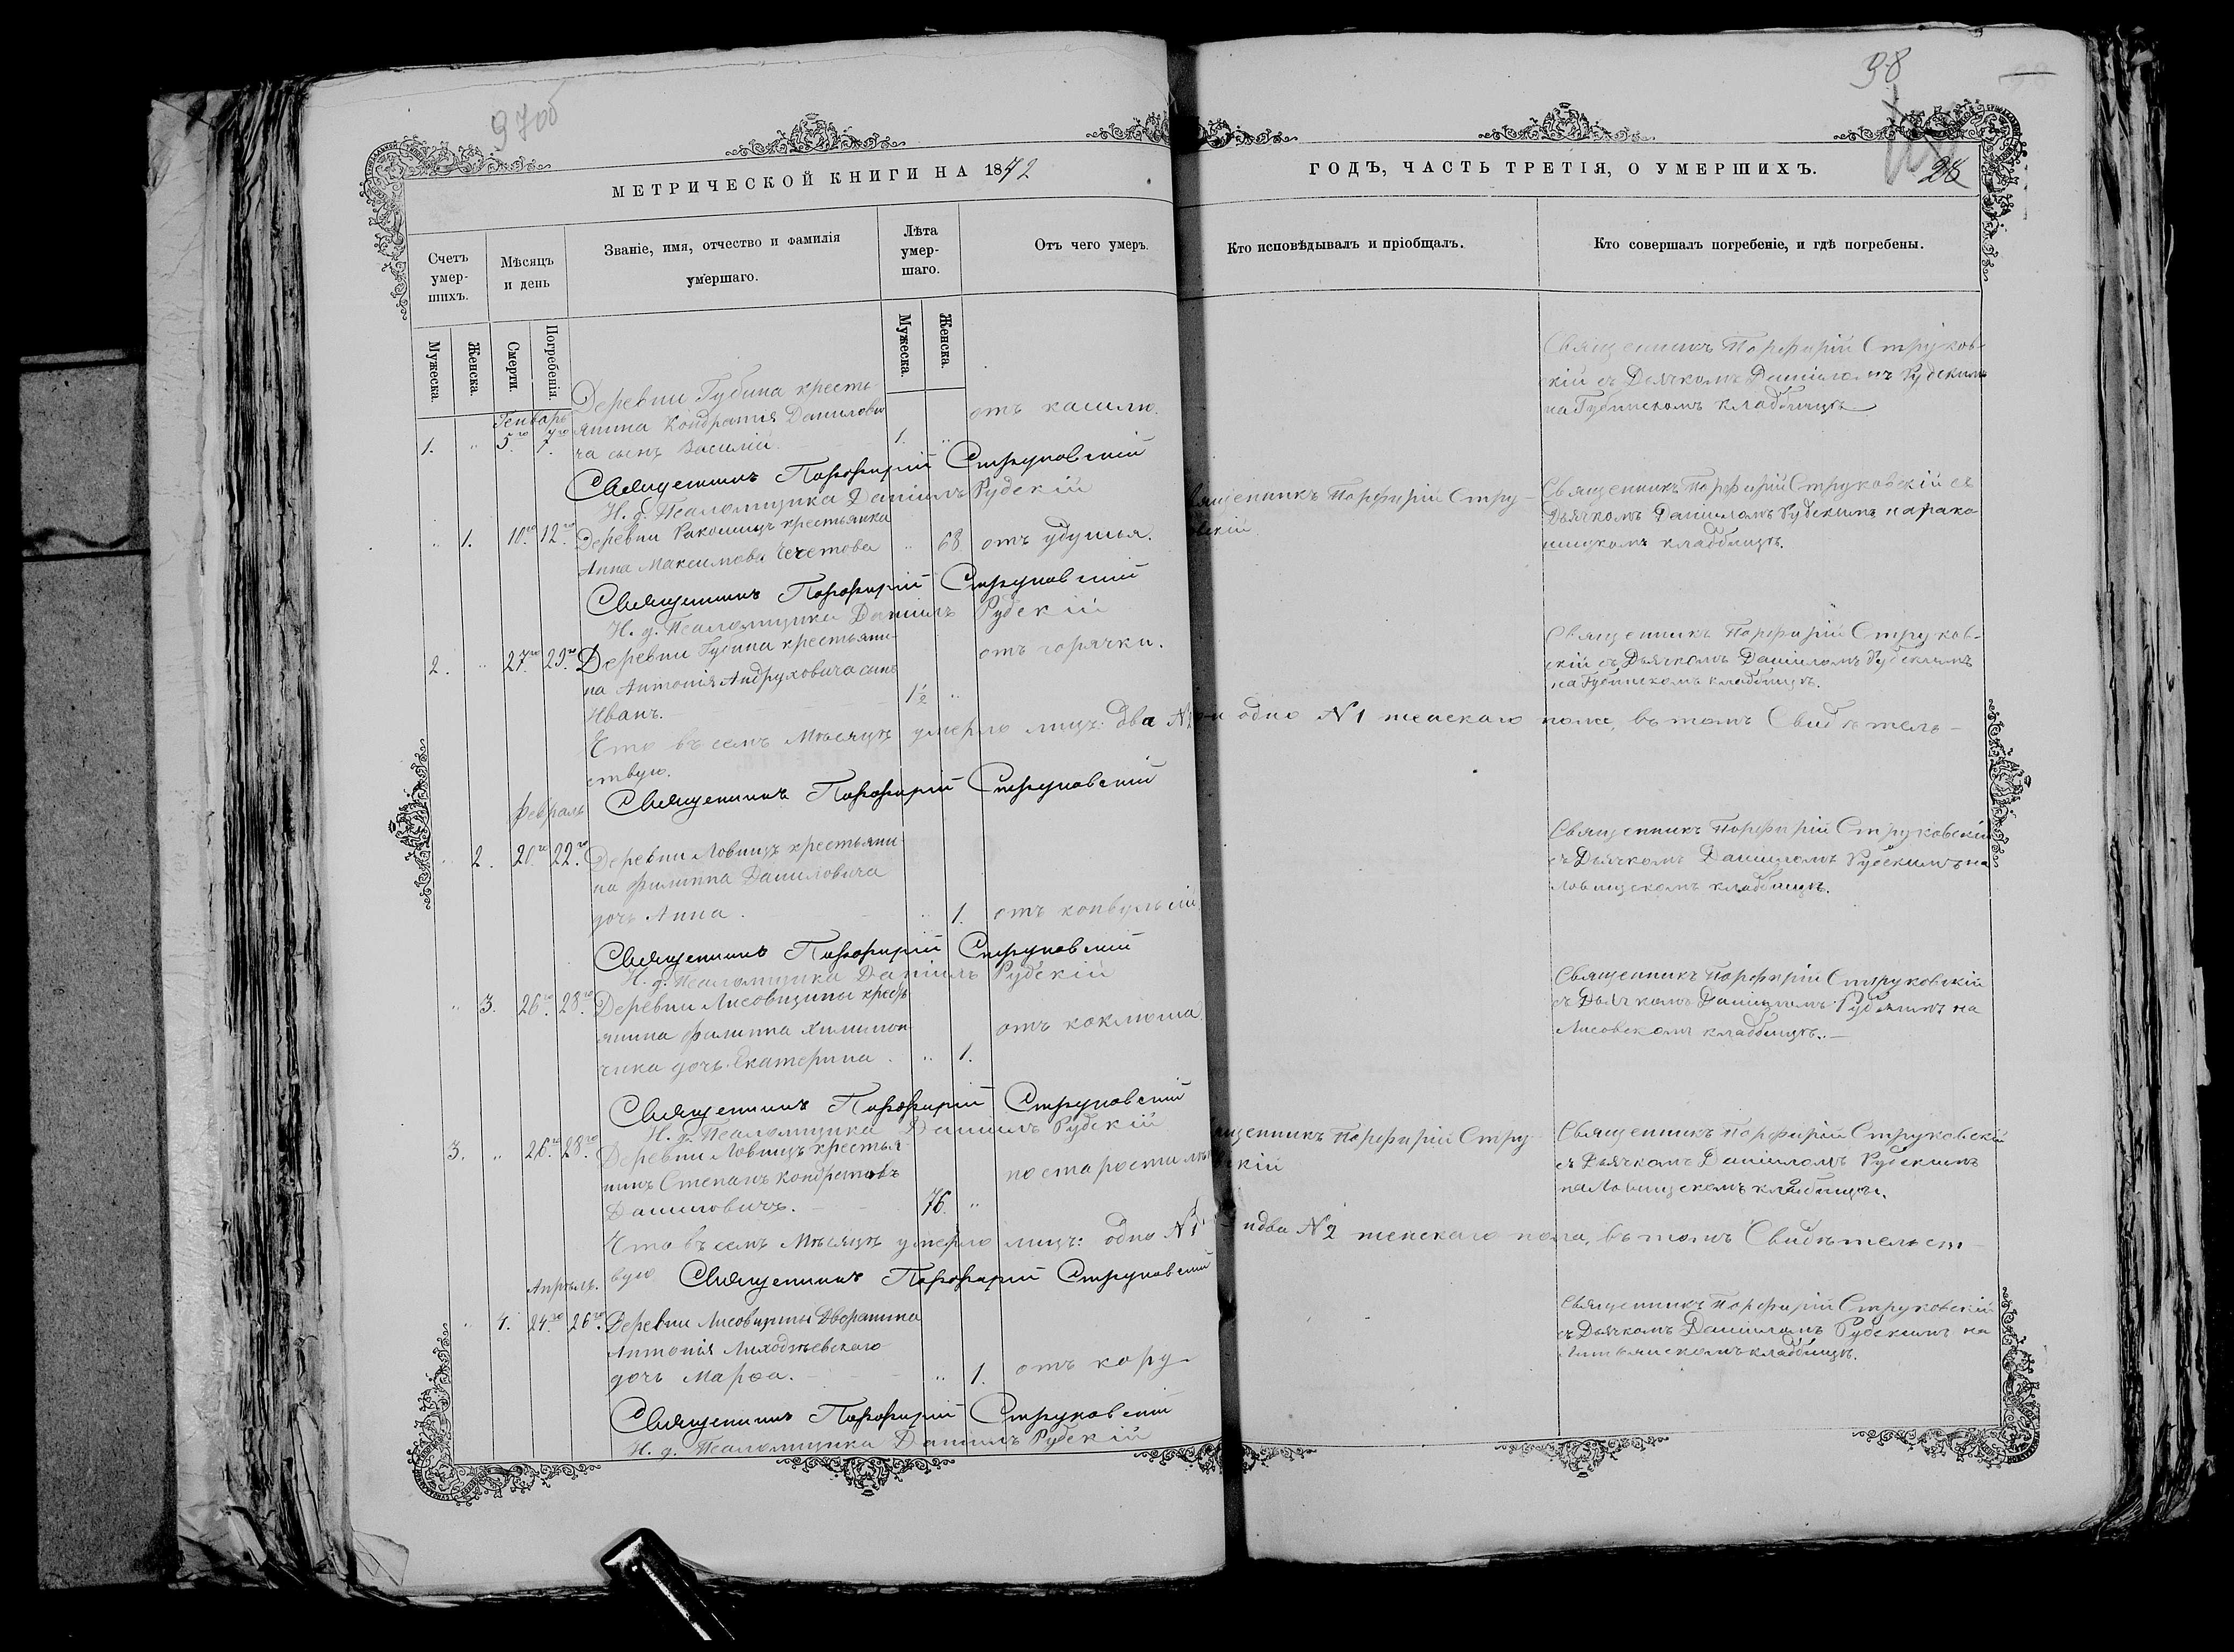 97об
МЕТРИЧЕСКОЙ КНИГИ НА 1872
Счетъ умер-шихъ.
Мѣсяцъ и день
Званіе, имя, отчество и фамилія умершаго.
Лѣта умер-шаго.
Отъ чего умеръ.
Мужеска.
Женска.
Смерти.
Погребенія.
Мужеска.
Женска.
Генварь
Деревни Губина кресть-
1. " 5го 7го янина Кондратія Данилови-
ча сынъ Василій. 1. " отъ кашлю.
Священникъ Порфирій Струковскій
И. д. Псаломщика Даніилъ Рудскій
" 1. 10го 12го Деревни Ракошицъ крестьянка
Анна Максимова Чечетова " 68 отъ удушья.
Священникъ Порфирій Струковскій
И. д. Псаломщика Даніилъ Рудскій
2. " 27го 29го Деревни Губина крестьяни-
на Антонія Андруховича сынъ
Иванъ. 1½ " отъ горячки.
Что въ семъ мѣсяцѣ умерло лицъ: два №2 и одно №1 женскаго пола, въ томъ Свидѣтель-
ствую.
Священникъ Порфирій Струковскій
Февраль
" 2. 20го 22го Деревни Ловницъ крестьяни-
на Филиппа Даниловича
дочь Анна. " 1. отъ конвульсій
Священникъ Порфирій Струковскій
И. д. Псаломщика Даніилъ Рудскій
" 3. 26го 28го Деревни Лисовщины кресть-
янина Филиппа Химион-
чика дочь Екатерина. " 1. отъ коклюша
Священникъ Порфирій Струковскій
И. д. Псаломщика Даніилъ Рудскій
3. " 26го 28го Деревни Ловницъ крестья-
нинъ Степанъ Кондратовъ
Даниловичъ. 76. " по старости лѣтъ
Что въ семъ мѣсяцѣ умерло лицъ: одно №1 и два №2 женскаго пола, въ томъ Свидѣтельст-
вую Священникъ Порфирій Струковскій
Апрѣль.
" 4. 24го 26го Деревни Лисовщины Дворянина
Антонія Лиходѣевскаго
дочь Марѳа. " 1. отъ кору
Священникъ Порфирій Струковскій
И. д. Псаломщика Даніилъ Рудскій
98
28
ГОДЪ, ЧАСТЬ ТРЕТІЯ, О УМЕРШИХЪ.
Кто исповѣдывалъ и пріобщалъ.
Кто совершалъ погребеніе, и гдѣ погребены.
Священникъ Порфирій Струков-
скій съ Дьячкомъ Даніиломъ Рудскимъ
на Губинскомъ кладбищѣ
Священникъ Порфирій Стру-
ковскій
Священникъ Порфирій Струковскій съ
Дьячкомъ Даніиломъ Рудскимъ на рако-
шицкомъ кладбищѣ.
Священникъ Порфирій Струков-
скій съ Дьячкомъ Даніиломъ Рудскимъ
на Губинскомъ кладбищѣ.
Священникъ Порфирій Струковскій
съ Дьячкомъ Даніиломъ Рудскимъ на
Ловницскомъ кладбищѣ.
Священникъ Порфирій Струковскій
съ Дьячкомъ Даніиломъ Рудскимъ на
Лисовскомъ кладбищѣ.
Священникъ Порфирій Стру-
ковскій
Священникъ Порфирій Струковскій
съ Дьячкомъ Даніиломъ Рудскимъ
на Ловницскомъ кладбищѣ.
Священникъ Порфирій Струковскій
съ Дьячкомъ Даніиломъ Рудскимъ на
кладбищѣ.